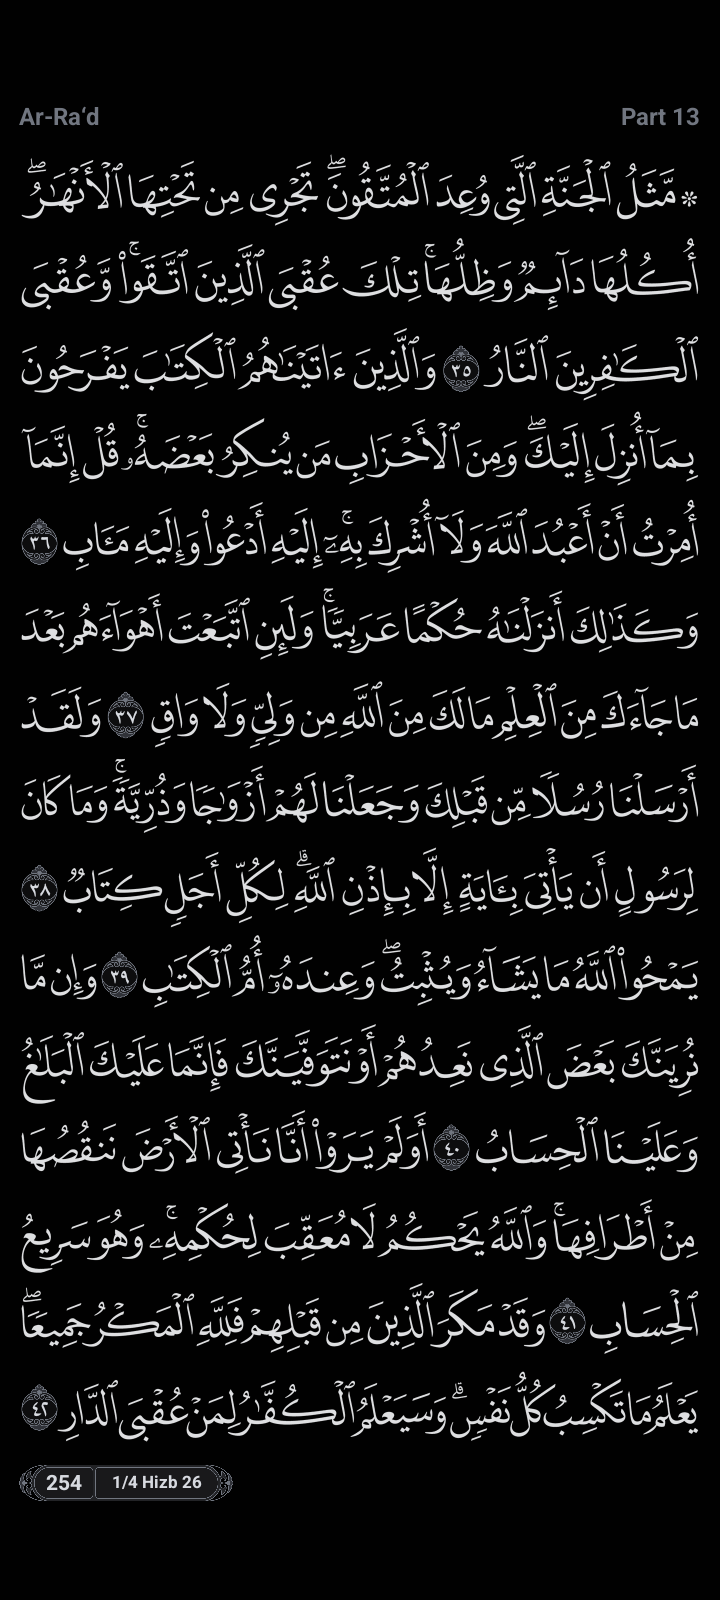 Ar-Ra‘d
Part 13
۞ مَّثَلُ ٱلْجَنَّةِ ٱلَّتِى وُعِدَ ٱلْمُتَّقُونَ ۖ تَجْرِى مِن تَحْتِهَا ٱلْأَنْهَـٰرُ ۖ
أُكُلُهَا دَآئِمٌ وَظِلُّهَا ۚ تِلْكَ عُقْبَى ٱلَّذِينَ ٱتَّقَوا۟ ۚ وَّعُقْبَى
ٱلْكَـٰفِرِينَ ٱلنَّارُ ٣٥ وَٱلَّذِينَ ءَاتَيْنَـٰهُمُ ٱلْكِتَـٰبَ يَفْرَحُونَ
بِمَآ أُنزِلَ إِلَيْكَ ۖ وَمِنَ ٱلْأَحْزَابِ مَن يُنكِرُ بَعْضَهُۥ ۚ قُلْ إِنَّمَآ
أُمِرْتُ أَنْ أَعْبُدَ ٱللَّهَ وَلَآ أُشْرِكَ بِهِۦٓ ۚ إِلَيْهِ أَدْعُوا۟ وَإِلَيْهِ مَـَٔابِ ٣٦
وَكَذَٰلِكَ أَنزَلْنَـٰهُ حُكْمًا عَرَبِيًّا ۚ وَلَئِنِ ٱتَّبَعْتَ أَهْوَآءَهُم بَعْدَ
مَا جَآءَكَ مِنَ ٱلْعِلْمِ مَا لَكَ مِنَ ٱللَّهِ مِن وَلِىٍّ وَلَا وَاقٍ ٣٧ وَلَقَدْ
أَرْسَلْنَا رُسُلًا مِّن قَبْلِكَ وَجَعَلْنَا لَهُمْ أَزْوَٰجًا وَذُرِّيَّةً ۚ وَمَا كَانَ
لِرَسُولٍ أَن يَأْتِىَ بِـَٔايَةٍ إِلَّا بِإِذْنِ ٱللَّهِ ۗ لِكُلِّ أَجَلٍ كِتَابٌ ٣٨
يَمْحُوا۟ ٱللَّهُ مَا يَشَآءُ وَيُثْبِتُ ۖ وَعِندَهُۥٓ أُمُّ ٱلْكِتَـٰبِ ٣٩ وَإِن مَّا
نُرِيَنَّكَ بَعْضَ ٱلَّذِى نَعِدُهُمْ أَوْ نَتَوَفَّيَنَّكَ فَإِنَّمَا عَلَيْكَ ٱلْبَلَـٰغُ
وَعَلَيْنَا ٱلْحِسَابُ ٤٠ أَوَلَمْ يَرَوْا۟ أَنَّا نَأْتِى ٱلْأَرْضَ نَنقُصُهَا
مِنْ أَطْرَافِهَا ۚ وَٱللَّهُ يَحْكُمُ لَا مُعَقِّبَ لِحُكْمِهِۦ ۚ وَهُوَ سَرِيعُ
ٱلْحِسَابِ ٤١ وَقَدْ مَكَرَ ٱلَّذِينَ مِن قَبْلِهِمْ فَلِلَّهِ ٱلْمَكْرُ جَمِيعًا ۖ
يَعْلَمُ مَا تَكْسِبُ كُلُّ نَفْسٍ ۗ وَسَيَعْلَمُ ٱلْكُفَّـٰرُ لِمَنْ عُقْبَى ٱلدَّارِ ٤٢
254
1/4 Hizb 26